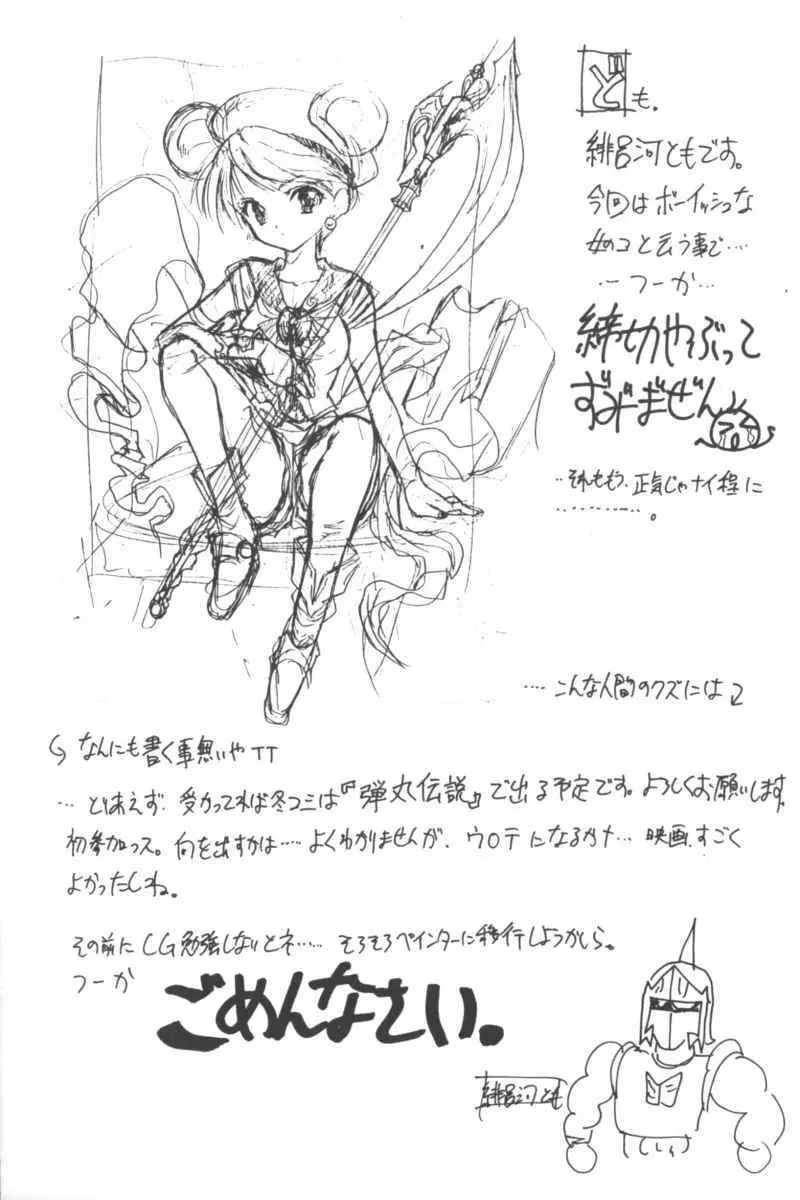 ども.
緋呂河ともです。
今回はボーイッシュな
女のコと云う事で‥‥
‥‥つーか‥
締切やぶって
ずみ゛ーまぜん
‥それももう、正気じゃナイ程に
‥‥‥‥‥。
‥‥こんな人間のクズには
なんにも書く事無いやTT
‥‥とりあえず、受かってれば冬コミは『弾丸伝説』で出る予定です。よろしくお願いします
初参加っス。何を出すかは‥‥よくわかりませんが、ウロテになるかナ‥‥映画、すごく
よかったしね。
その前にCG勉強しないとネ‥‥‥そろそろペインターに移行しようかしら。
つーか
ごめんなさい。
緋呂河とも